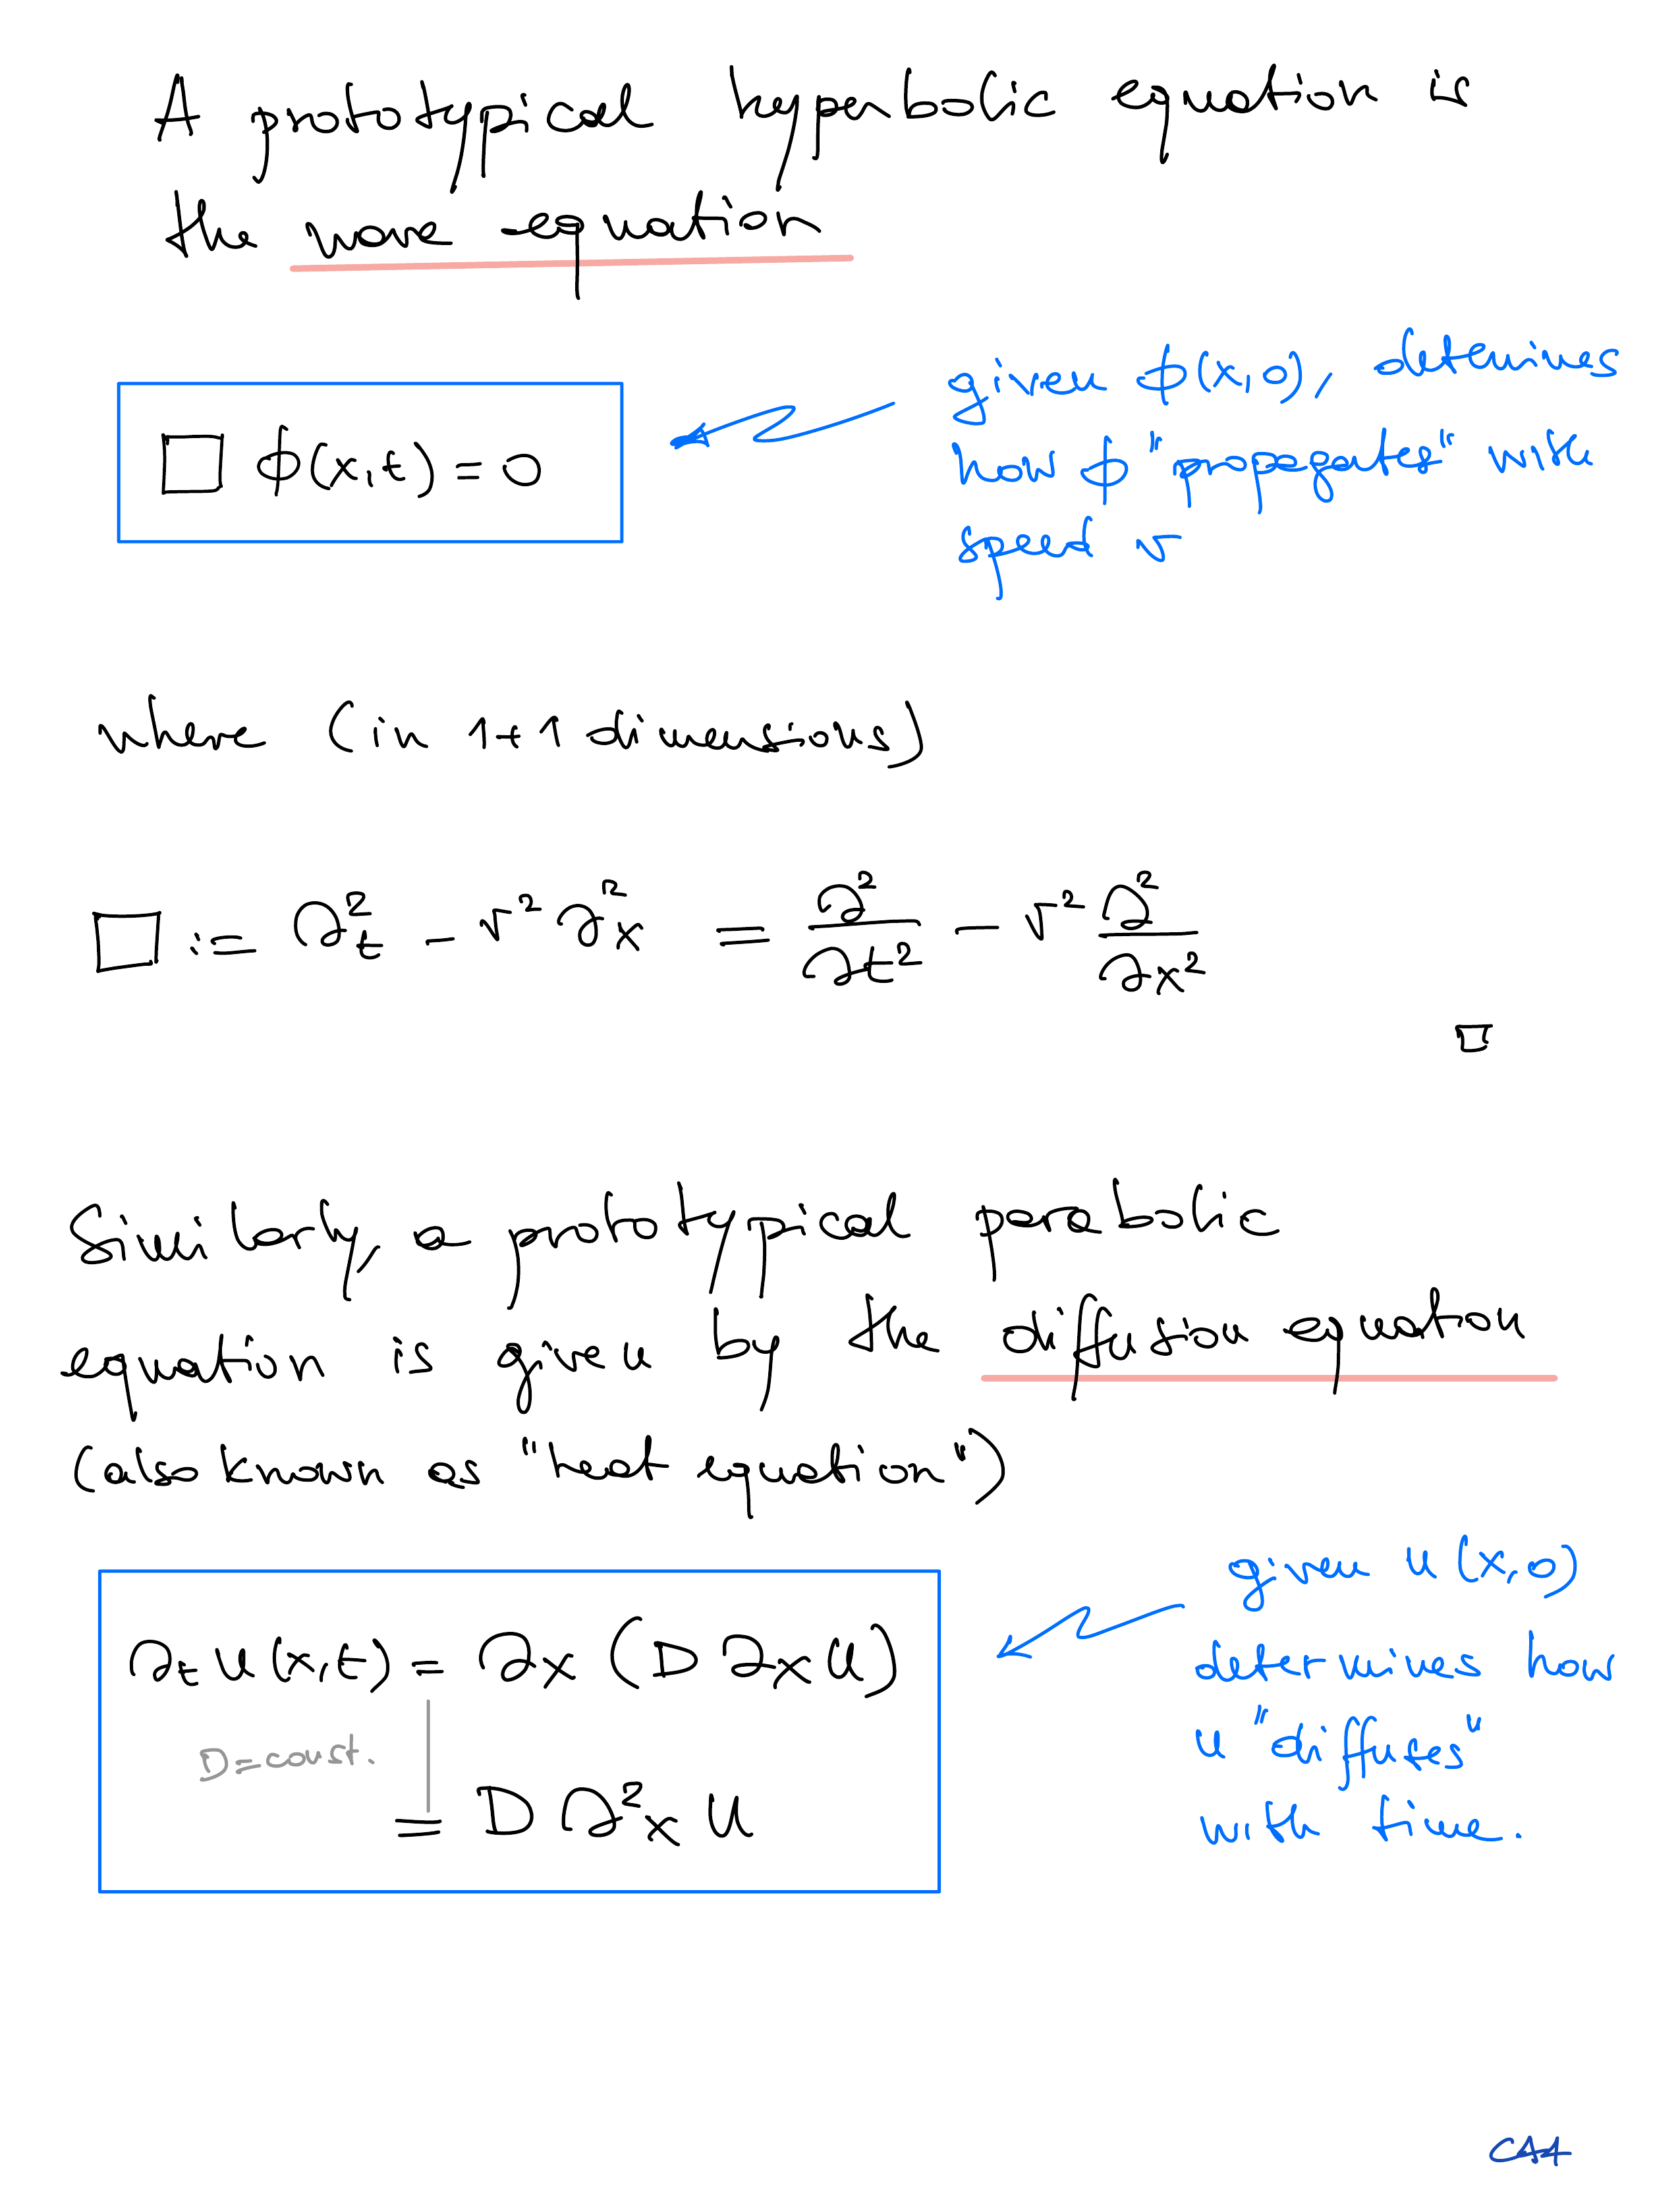 A prototypical hyperbolic equation is
the wave equation
□ ϕ(x,t) = 0
given ϕ(x,0), determines
how ϕ "propagates" with
speed v
where (in 1+1 dimensions)
□ := ∂²ₜ - v² ∂²ₓ = ∂²/∂t² - v² ∂²/∂x²
□
Similarly, a prototypical parabolic
equation is given by the diffusion equation
(also known as "heat equation")
∂ₜ u(x,t) = ∂ₓ (D ∂ₓ u)
D=const.
= D ∂²ₓ u
given u(x,0)
determines how
u "diffuses"
with time.